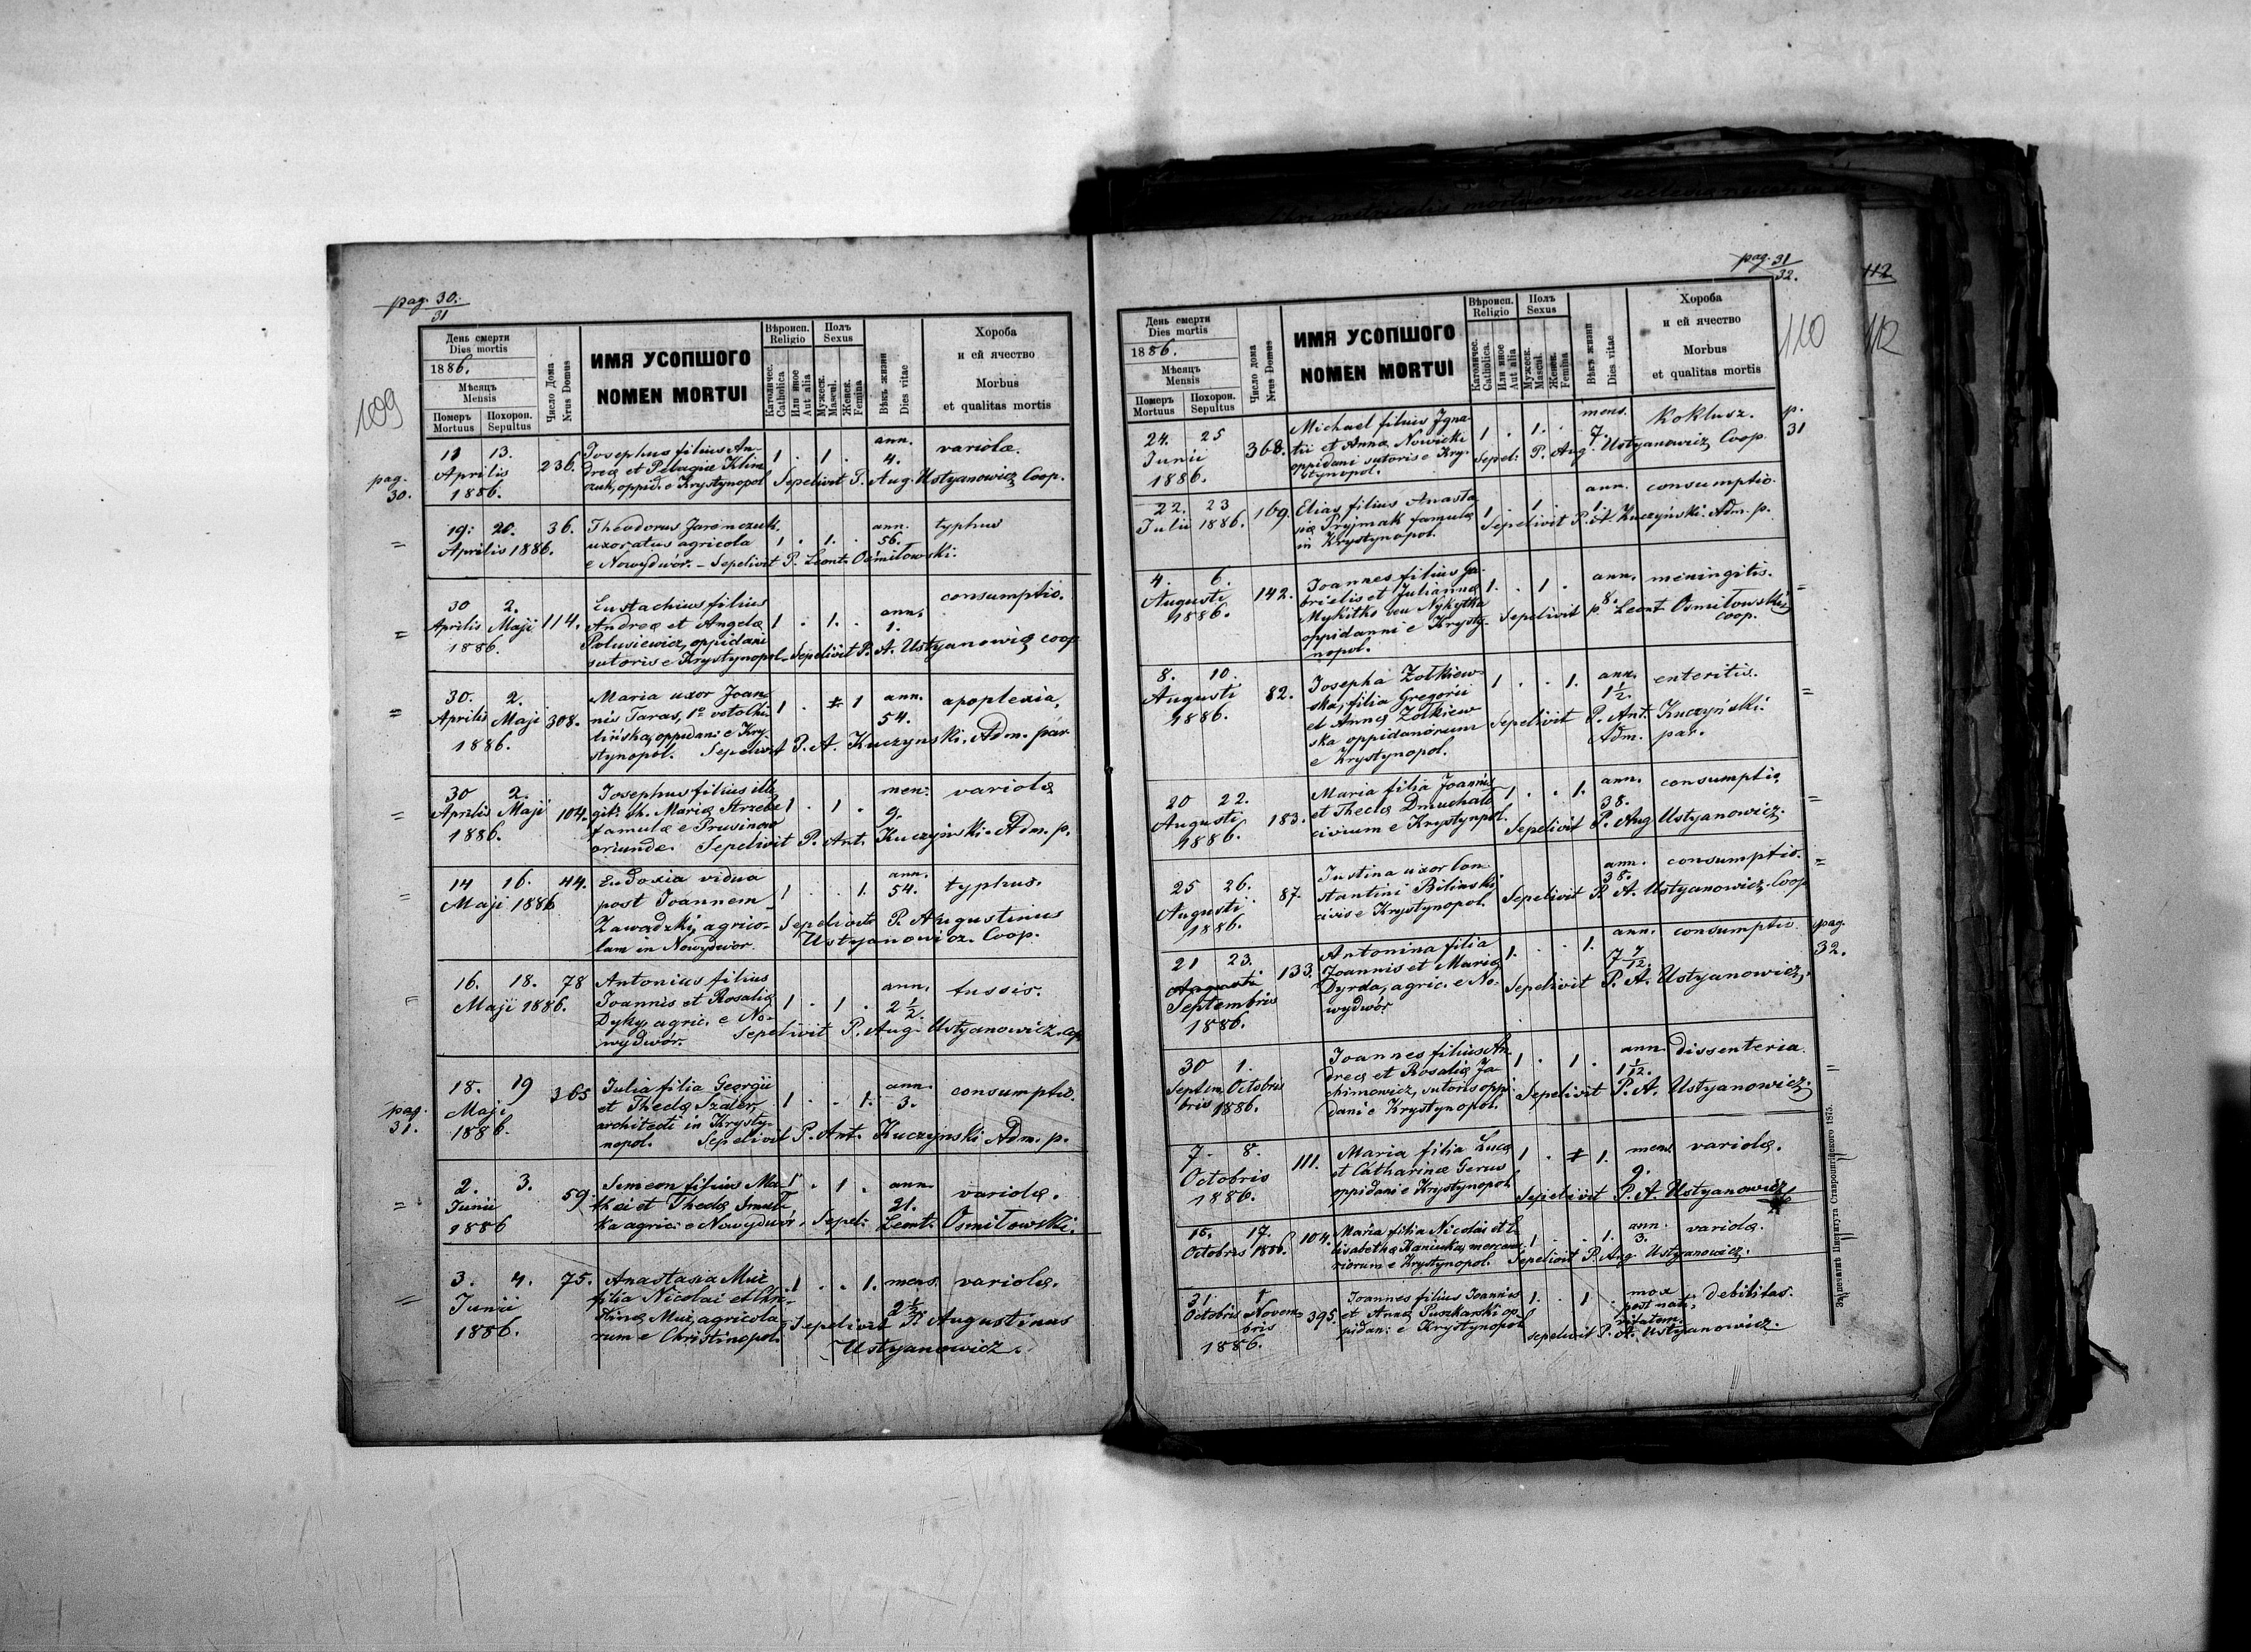 pag. 30.
31
109
День смерти
Dies mortis
1886.
Мѣсяцъ
Mensis
Померъ
Mortuus
Похорон.
Sepultus
Число Дома
Nrus Domus
ИМЯ УСОПШОГО
NOMEN MORTUI
Вѣроисп.
Religio
Католичес.
Catholica
Или иное
Aut alia
Полъ
Sexus
Мужеск.
Mascul.
Женск.
Femina
Вѣкъ жизни
Dies vitae
Хороба
и ей ячество
Morbus
et qualitas mortis
pag. 30.
11 13. Aprilis 1886. 236.
Josephus filius An-
dreæ et Pelagiæ Klim
czuk, oppid. e Krystynopol
1 . 1 . ann. 4. variolæ.
Sepelivit P. Aug. Ustyanowicz Coop.
= 19. 20. Aprilis 1886. 36.
Theodorus Jaremczuk
uxoratus agricola
e Nowydwór. – Sepelivit P. Leont. Ośmiłowski.
1 . 1. . ann. 56. typhus
= 30 2. Aprilis Maji 1886. 114.
Eustachius filius
Andreæ et Angelæ
Polusiewicz, oppidani
sutoris e Krystynopol - Sepelivit P. A. Ustyanowicz coop
1 . 1. . ann. 1. consumptio.
= 30. 2. Aprilis Maji 1886. 308.
Maria uxor Joan-
nis Taras, 1º voto
oppidani e Kry-
stynopol. Sepelivit P. A. Kuczynski, Adm. par
1 . 1 ann. 54. apoplexia,
= 30 2. Aprilis Maji 1886. 104.
Josephus filius ille
git. th. Mariæ
famulæ e Prusinow
oriundæ. Sepelivit P. Ant. Kuczyński. Adm. p.
1 . 1 . men. 9. variolæ
= 14 16. Maji 1886 44.
Eudoxia vidua
post Joannem
Zawadzki, agrico-
lam in Nowydwor.
1 . . 1. ann. 54. typhus.
Sepelivit P. Augustinus
Ustyanowicz. Coop.
= 16. 18. Maji 1886. 78
Antonius filius
Joannis et Rosaliæ
Dyky, agric. e No-
wydwór. Sepelivit P. Aug. Ustyanowicz. Coop
1 . 1 . ann. 2 1/2. tussis.
pag. 31.
18. 19 Maji 1886. 365
Julia filia Georgii
et Theclæ Szaler,
architecti in Krysty-
nopol. Sepelivit P. Ant. Kuczynski Adm. p.
1 . . 1. ann. 3. consumptio.
= 2. 3. Junii 1886 59.
Simeon filius Ma-
thei et Theclæ
ka agric. e Nowydwór, Sepel. Leont. Osmiłowski.
1 . 1 . ann. 21. variolæ.
= 3. 4. Junii 1886. 75.
Anastasia Muż
filia Nicolai et Chri-
stinæ Muż, agricola-
rum e Christinopol.
1 . . 1. mens. 2 1/2 variolæ.
Sepelivit P. Augustinus
Ustyanowicz.
pag. 31
32.
110
112
112
День смерти
Dies mortis
1886.
Мѣсяцъ
Mensis
Померъ
Mortuus
Похорон.
Sepultus
Число дома
Nrus Domus
ИМЯ УСОПШОГО
NOMEN MORTUI
Вѣроисп.
Religio
Католичес.
Catholica.
Или иное
Aut alia
Полъ
Sexus
Мужеск.
Mascul.
Женск.
Femina
Вѣкъ жизни
Dies vitae
Хороба
и ей ячество
Morbus
et qualitas mortis
24. 25 Junii 1886. 368.
Michael filius Igna-
tii et Annæ Nowicki
oppidani sutoris e Kry-
stynopol.
1 . 1. . mens. 7. Koklusz. p. 31
Sepel. P. Aug. Ustyanowicz, Coop.
22. 23 Julii 1886. 169.
Elias filius Anasta
siæ Pryjmak famulæ
in Krystynopol.
1 . 1 . ann. 1. consumptio
Sepelivit P. A. Kuczyński. Adm. p.
4. 6. Augusti 1886. 142.
Joannes filius Ga-
brielis et Juliannæ
Mykitko seu Nykytka
oppidanni e Krysty-
nopol.
1. . 1 . ann. 8. meningitis. =
Sepelivit P. Leont. Osmiłowski
coop.
8. 10. Augusti 1886. 82.
Josepha Zołkiew-
ska, filia Gregorii
et Annæ Zołkiew
ska oppidanorum
e Krystynopol.
1 . . 1. ann. 1 1/2. enteritis. =
Sepelivit P. Ant. Kuczyński.
Adm. par.
20 22. Augusti 1886. 183.
Maria filia Joannis
et Theclæ Dmuchals
civium e Krystynopol.
1 . . 1. ann. 38. consumptio =
Sepelivit P. Aug Ustyanowicz.
25 26. Augusti 1886. 87.
Justina uxor Con-
stantini Bilinski
civis e Krystynopol.
ann. 38. consumptio. =
Sepelivit P. A. Ustyanowicz. Coop
21 23. Augusti Septembris 1886. 133.
Antonina filia
Joannis et Mariæ
Dyrda, agric. e No-
wydwór
1. . . 1. ann. 7 7/12. consumptio pag. 32.
Sepelivit P. A. Ustyanowicz.
30 1. Septem Octobris
bris 1886.
Joannes filius An
dreæ et Rosaliæ Ja
chimowicz, sutoris oppi
dani e Krystynopol.
1 . 1 . ann 1 1/12. dissenteria =
Sepelivit P. A. Ustyanowicz.
7. 8. Octobris 1886. 111.
Maria filia Lucæ
et Catharinæ Gerus
oppidani e Krystynopol
1 . 1. mens 9. variolæ.
Sepelivit P. A. Ustyanowicz
15. 17. Octobris 1886. 104.
Maria filia Nicolai et E-
lisabethæ Haniuka, mercena-
riorum e Krystynopol.
1 . . 1. ann. 3. variolæ.
Sepelivit P. Aug. Ustyanowicz.
31. 1 Octobris Novem-
bris
1886. 395.
Joannes filius Joannis
et Annæ Puszkarski op-
pidani e Krystynopol
1. . 1 . mox
post nati-
vitatem. debilitas.
sepelivit P. A. Ustyanowicz.
Зъ печатнѣ Института Ставропигійского 1875.